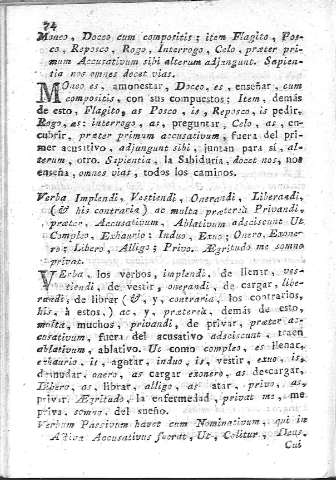 74
Moneo, Doceo cum compositis; item Flagito, Pos-
co, Reposco, Rogo, Interrogo, Celo, præter pri-
mum Accusativum sibi alterum adjungunt. Sapien-
tia nos omnes docet vias.
MOneo, es, amonestar, Doceo, es, enseñar, cum
compositis, con sus compuestos; Item, demás
de esto, Flagito, as Posco, is, Reposco, is pedir,
Rogo, as: interrogo, as, preguntar, Celo, as, en-
cubrir, præter primum accusativum, fuera del pri-
mer acusativo, adjungunt sibi, juntan para sí, al-
terum, otro. Sapientia, la Sabiduría, docet nos, nos
enseña, omnes vias, todos los caminos.
Verba Implendi, Vestiendi, Onerandi, Liberandi,
(& his contraria) ac multa præterià Privandi,
præter, Accusativum, Ablativum adsciscunt Ut
Compleo, Exhaurio: Induo, Exuo; Onero, Exone-
ro: Libero, Alligo; Privo. Ægritudo me somno
privat.
VErba, los verbos, implendi, de llenar, ves-
tiendi, de vestir, onerandi, de cargar, libe-
randi, de librar (&, y, contraria, los contrarios,
his, à estos) ac, y, præterià, demás de esto,
multa, muchos, privandi, de privar, præter ac-
cusativum, fuera del acusativo adsciscunt, traen
ablativum, ablativo. Ut como compleo, es llenar,
exhaurio, is, agotar, induo, is, vestir, exuo, is,
desnudar, onero, as cargar exonero, as descargar,
Libero, as, librar, alligo, as atar, privo, as,
privar. Ægritudo, la enfermedad, privat me, me
priva, somno, del sueño.
Verbum Passivum havet cum Nominativum, qui in
Activa Accusativus fuerat, Ut, Colitur, Deus.
Cui